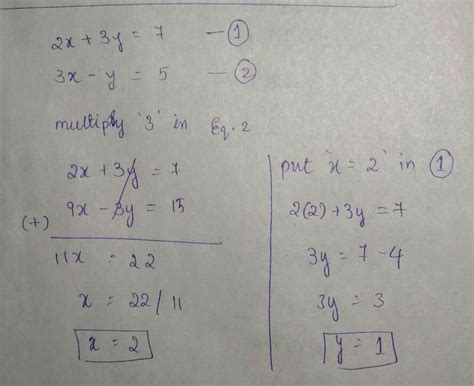 2x + 3y = 7 — ①
3x - y = 5 — ②
multiply '3' in Eq. 2
2x + 3y = 7
(+) 9x - 3y = 15
11x = 22
x = 22/11
x = 2
put 'x = 2' in ①
2(2) + 3y = 7
3y = 7 - 4
3y = 3
y = 1